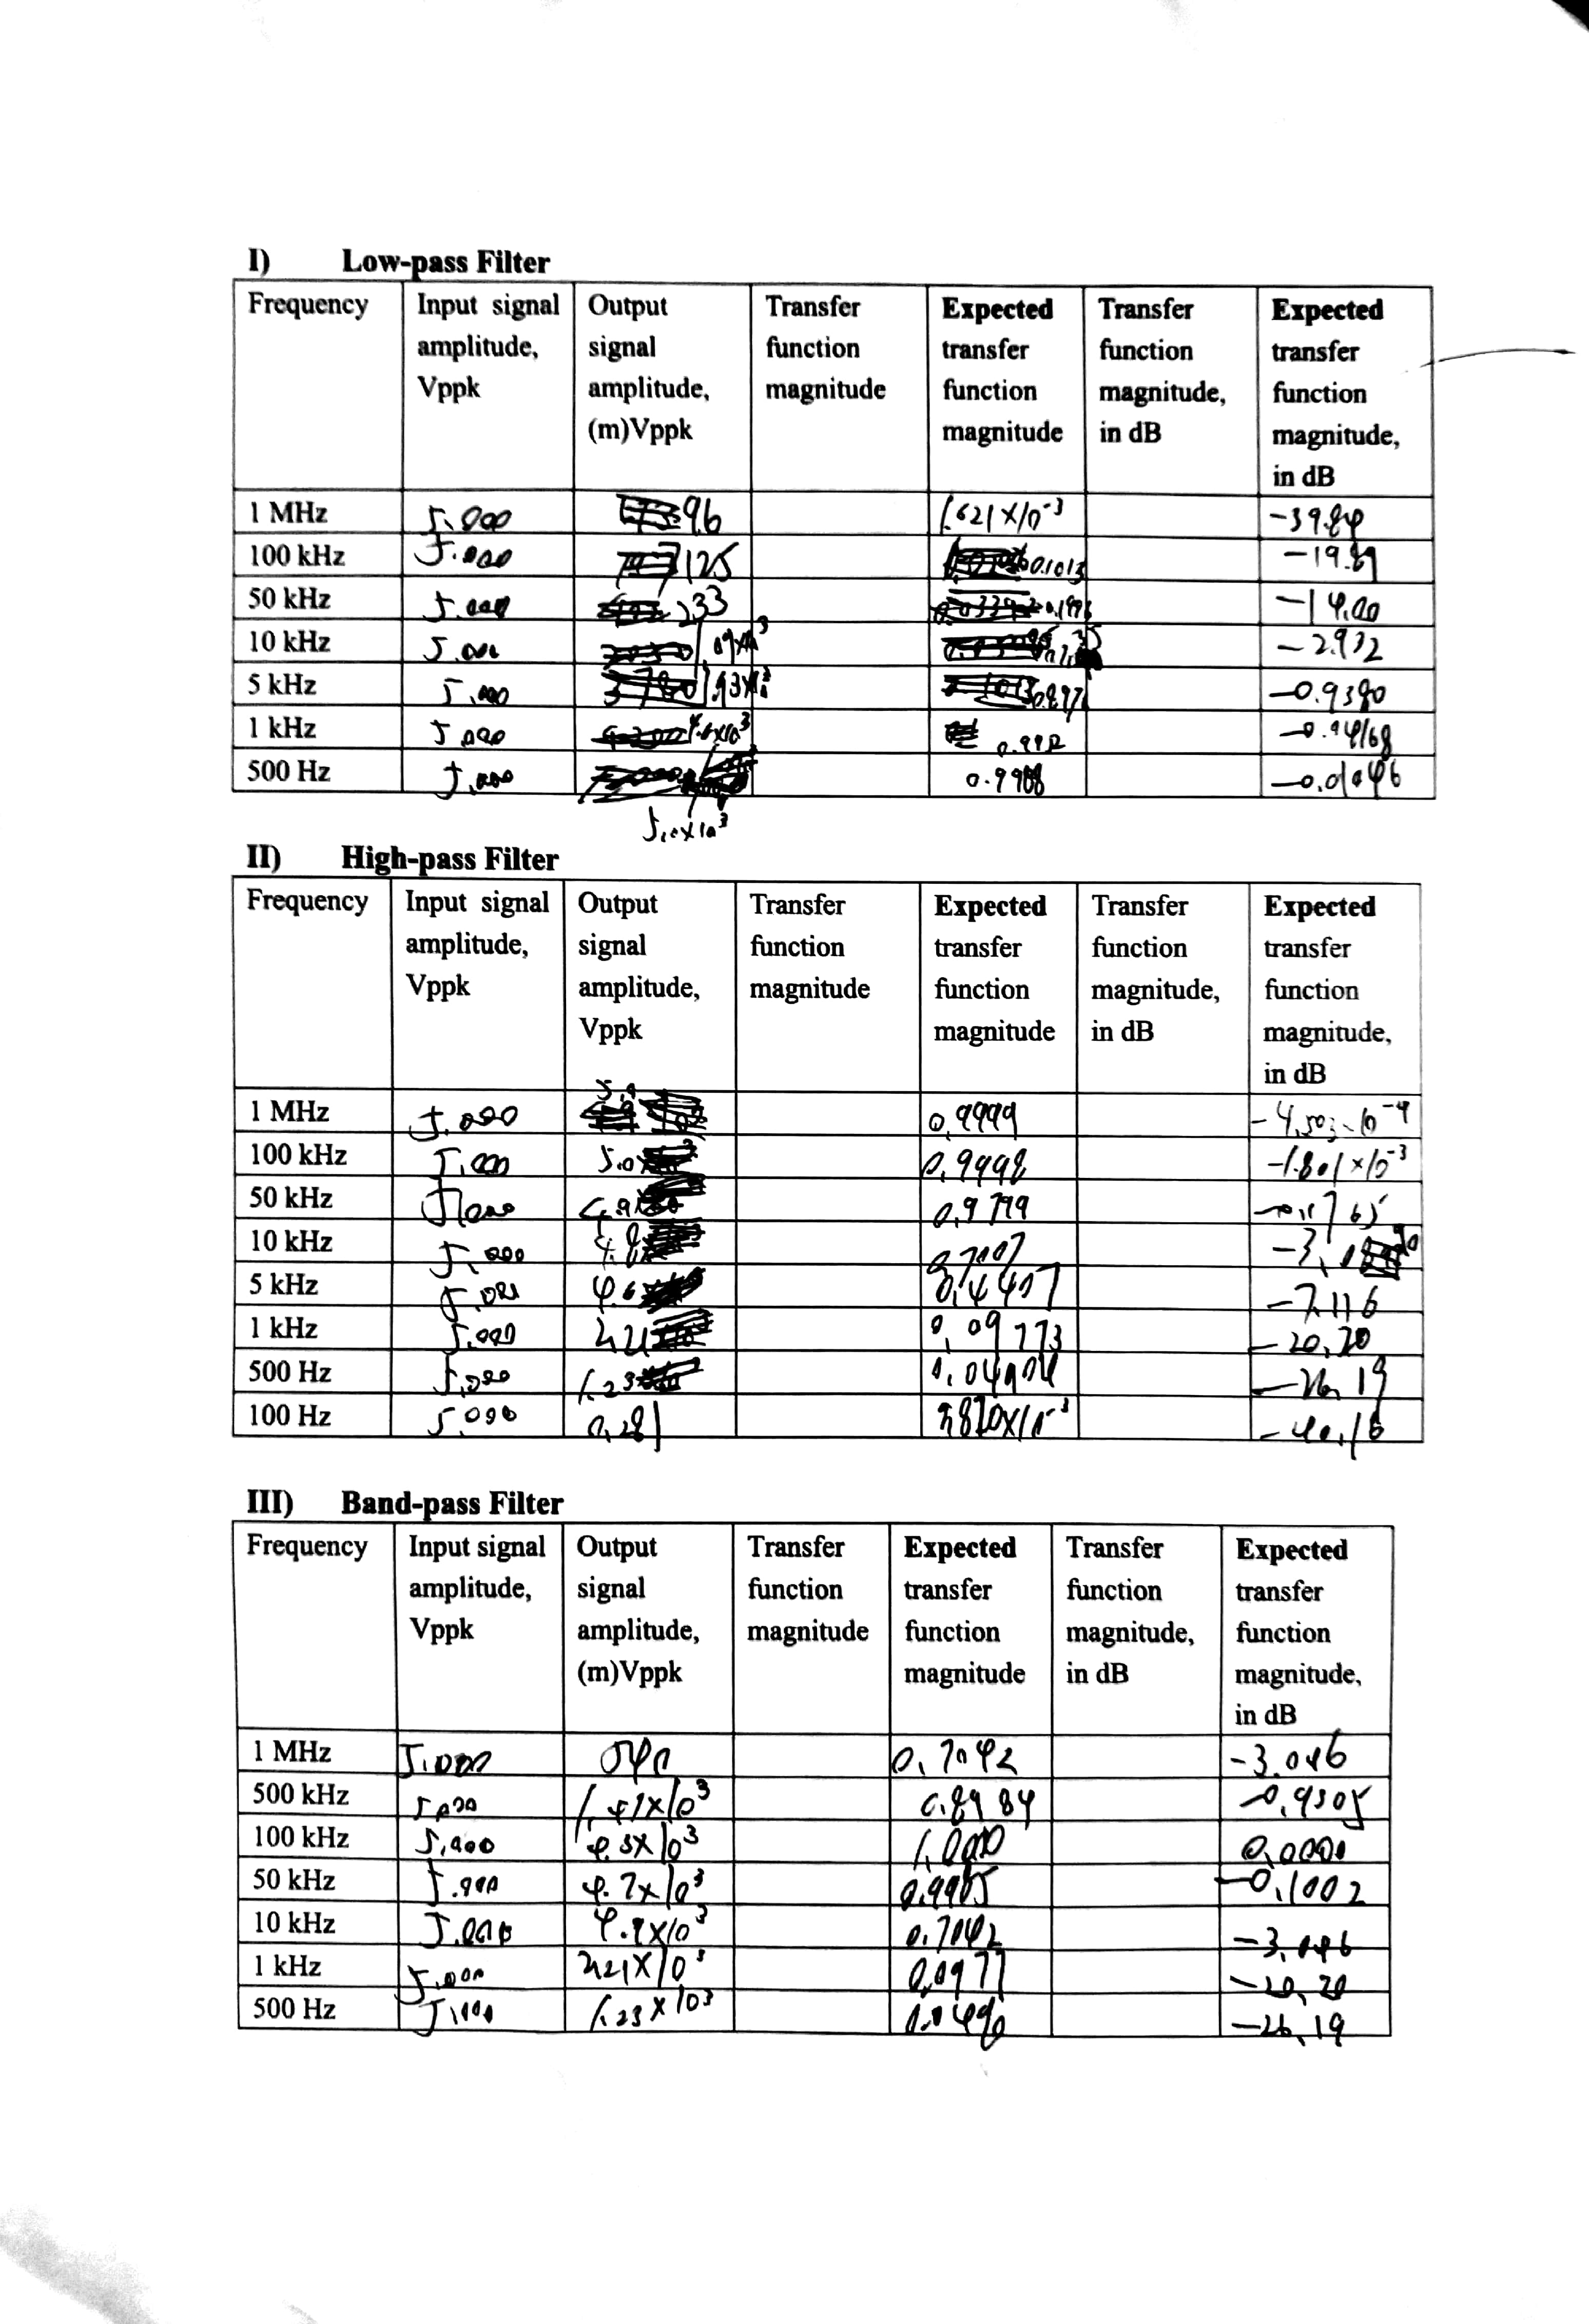 I) Low-pass Filter
Frequency Input signal amplitude, Vppk Output signal amplitude, (m)Vppk Transfer function magnitude Expected transfer function magnitude Transfer function magnitude, in dB Expected transfer function magnitude, in dB
1 MHz 5.000 96 1.621×10⁻³ -39.84
100 kHz 5.000 125 0.1013 -19.89
50 kHz 5.000 233 0.1996 -14.00
10 kHz 5.000 -2.932
5 kHz 5.000 -0.9380
1 kHz 5.000 0.992
500 Hz 5.000 0.9988 -0.01046
5.0×10³
II) High-pass Filter
Frequency Input signal amplitude, Vppk Output signal amplitude, Vppk Transfer function magnitude Expected transfer function magnitude Transfer function magnitude, in dB Expected transfer function magnitude, in dB
1 MHz 5.000 5.0 0.9999
100 kHz 5.000 5.0 0.9998 -1.801×10⁻³
50 kHz 5.000 4.9 0.9799
10 kHz 5.000 4.8 0.7007
5 kHz 5.000 4.6 0.4407 -7.116
1 kHz 5.000 2.21 0.09773 -20.20
500 Hz 5.000 1.23 0.04904 -26.19
100 Hz 5.000 0.281 -40.16
III) Band-pass Filter
Frequency Input signal amplitude, Vppk Output signal amplitude, (m)Vppk Transfer function magnitude Expected transfer function magnitude Transfer function magnitude, in dB Expected transfer function magnitude, in dB
1 MHz 5.000 0.7042 -3.046
500 kHz 5.000 0.8984 -0.9305
100 kHz 5.000 4.3×10³ 1.000 0.0000
50 kHz 5.000 4.7×10³ 0.9885 -0.1002
10 kHz 5.000 4.8×10³ 0.7042 -3.046
1 kHz 5.000 2.21×10³ 0.0977 -20.20
500 Hz 5.000 1.23×10³ 0.0490 -26.19